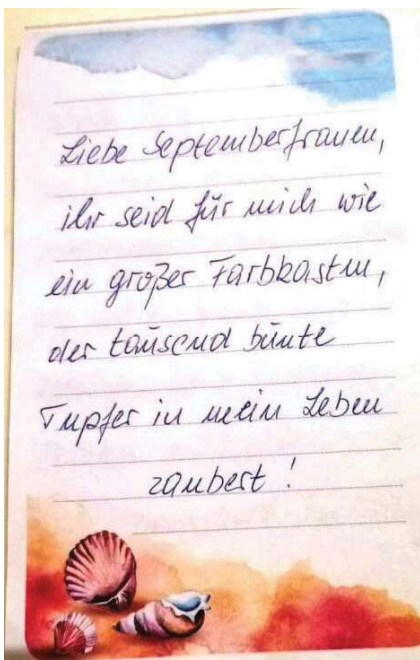 Liebe Septemberfrauen,
ihr seid für mich wie
ein großer Farbkasten,
der tausend bunte
Tupfer in mein Leben
zaubert!